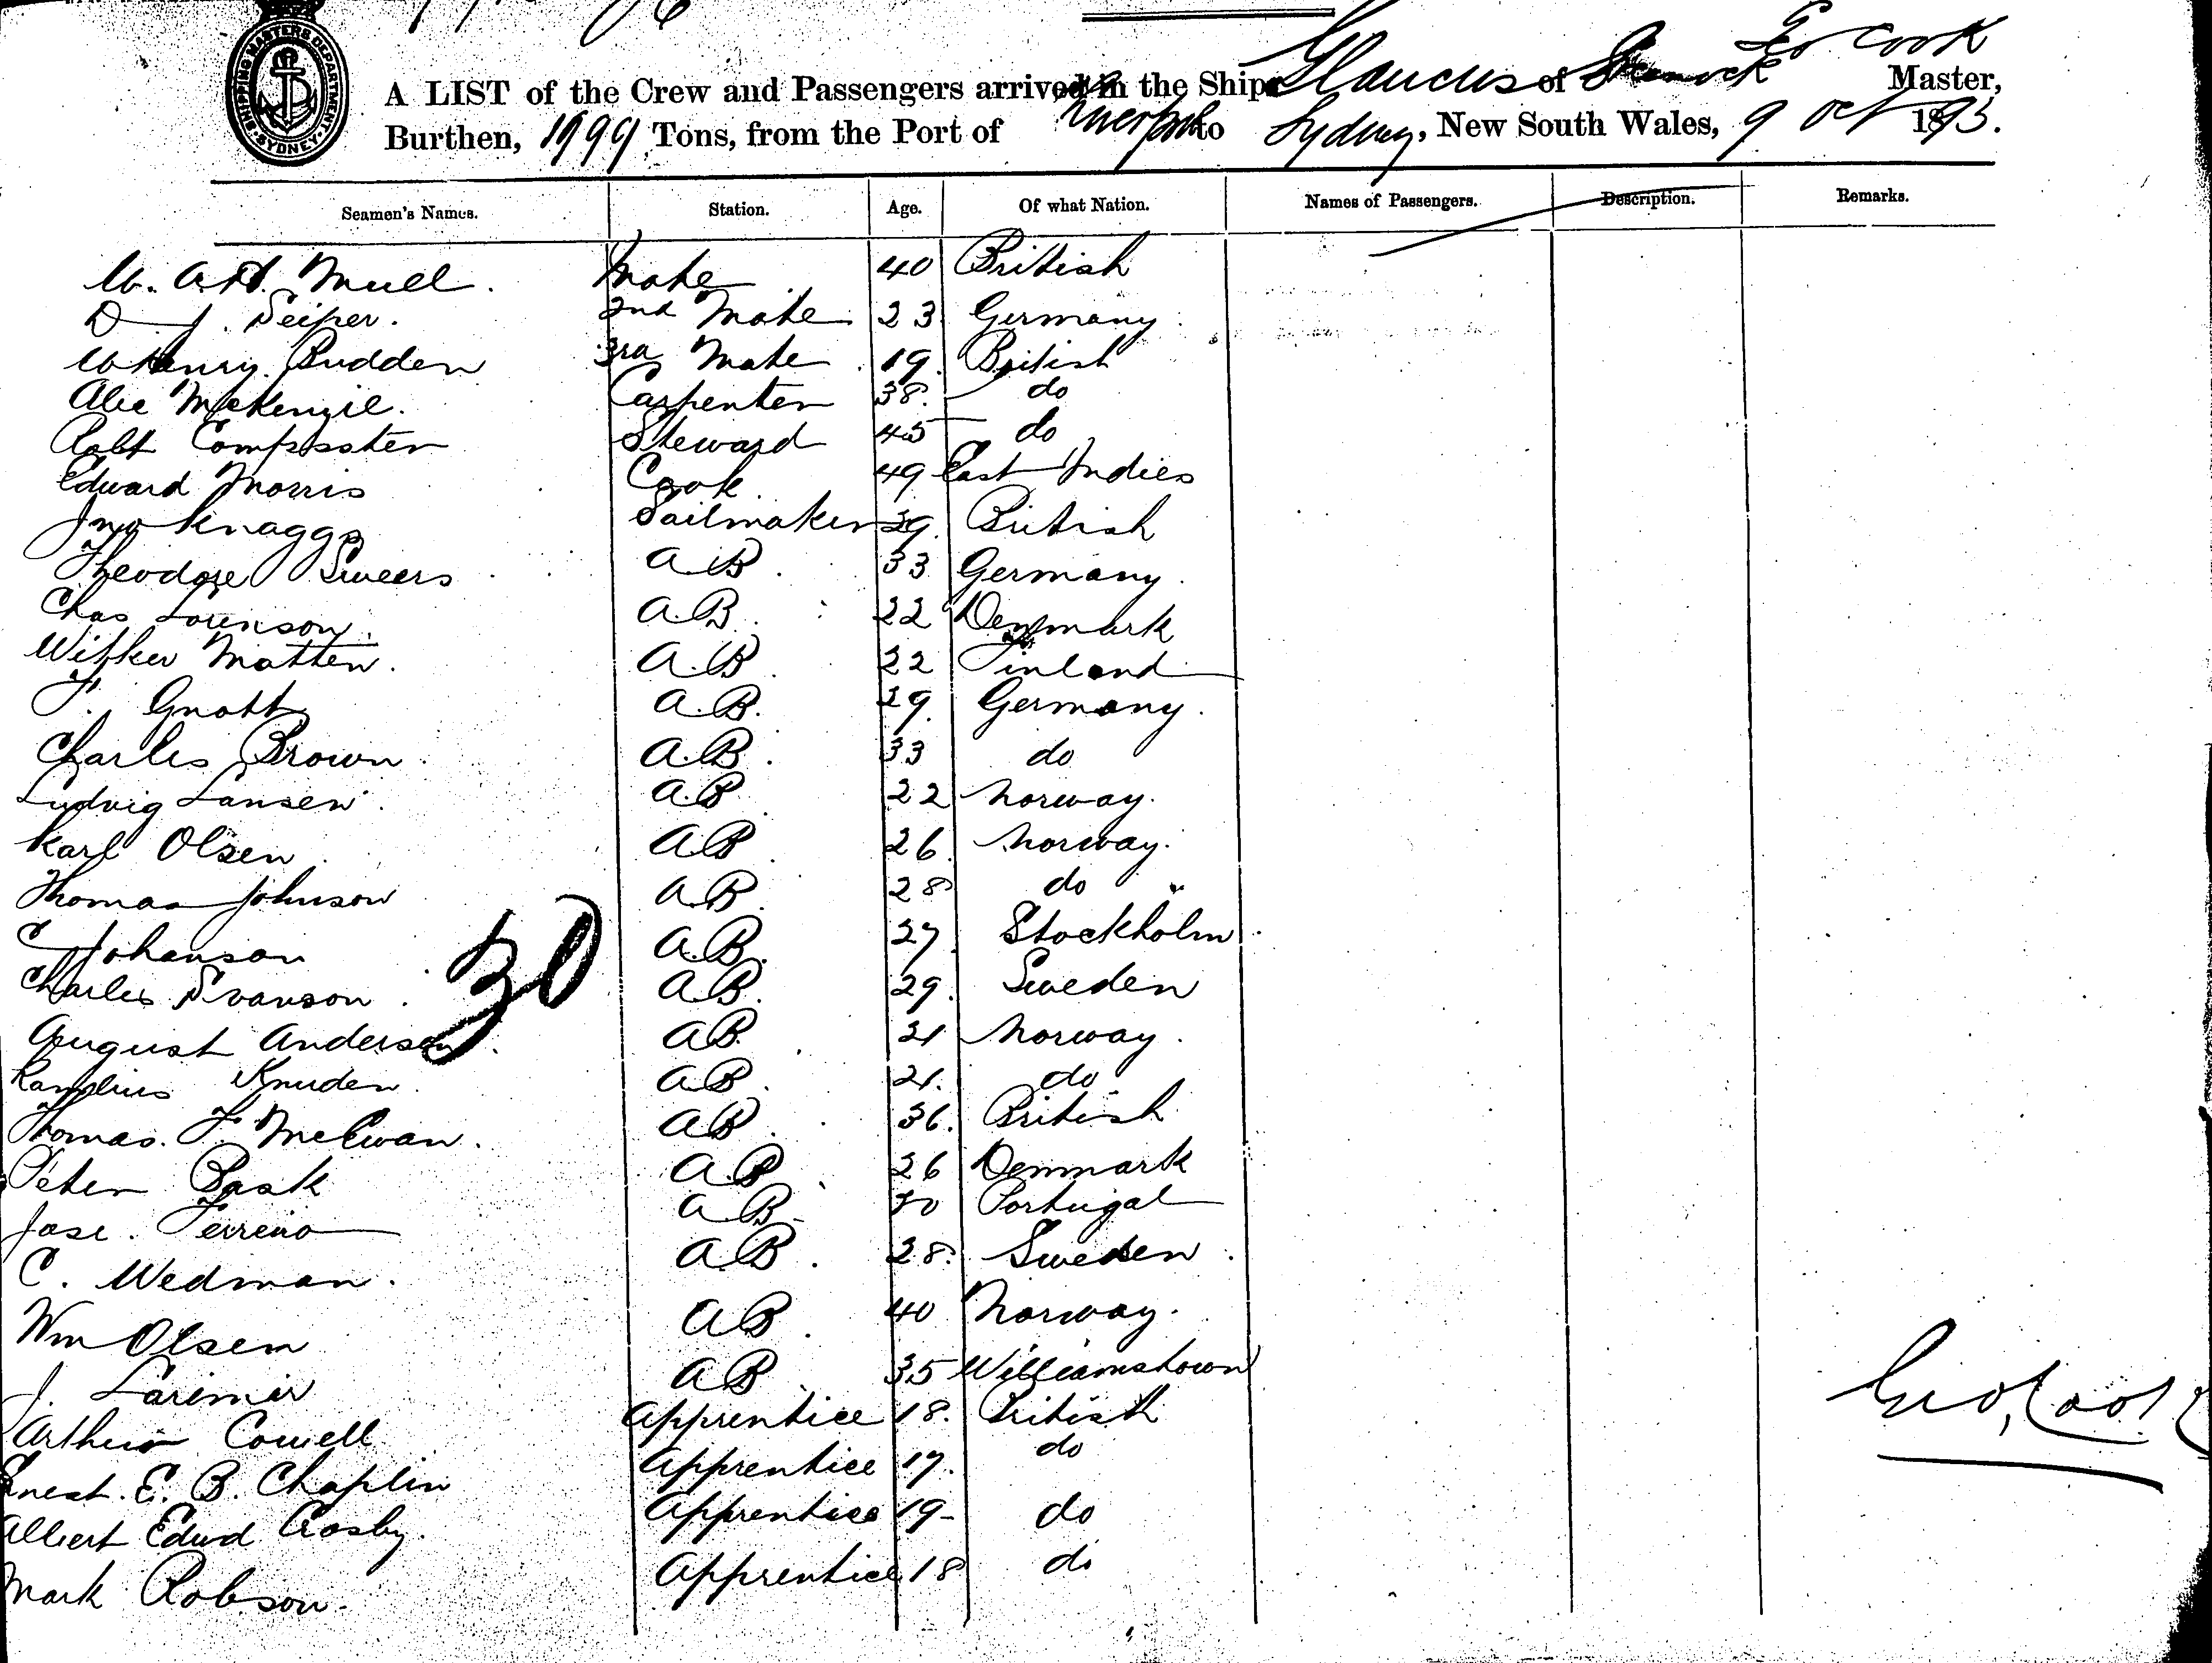 SHIPPING MASTERS DEPARTMENT
SYDNEY
Geo Cook
A LIST of the Crew and Passengers arrived in the Ship Glaucus of Greenock Master,
Burthen, 1999 Tons, from the Port of Liverpool to Sydney, New South Wales, 9 Oct 1893.
Seamen's Names. Station. Age. Of what Nation. Names of Passengers. Description. Remarks.
Mull. Mate 40 British
D J. Seiper. 2nd Mate 23 Germany.
W Henry. Budden 3rd Mate 19. British
Alec McKenzie. Carpenter 38. do
Robt Steward 45 do
Edward Morris Cook 49 East Indies
Jno Knaggs Sailmaker 29. British
Theodore Sweers A B. 33 Germany.
Chas Lorenson. A.B. 22 Denmark
Matten. A.B. 22 Finland
Gnott A.B. 29. Germany.
Charles Brown. A.B. 33 do
Ludvig Lansen. A.B. 22 Norway.
Karl Olsen. A B. 26. Norway.
Thomas Johnson A.B. 28 do "
C Johanson A.B. 27. Stockholm.
Charles Svanson. A B. 29. Sweden
30
August Andersen. A B. 21 Norway.
Knuden A B. 21. do
Thomas. F. McEwan. A B. 36. British
Peter Bask A.B. 26 Denmark
Jose. Ferreno A B Portugal
C. Wedman. A B. 28. Sweden.
Wm Olsen A B. 40 Norway.
J. Larimer A B. 35 Williamstown
Arthur Cowell Apprentice 18. British
Ernest. E. B. Chaplin Apprentice 17. do
Albert Edwd Crosby. Apprentice 19- do
Mark Robson. Apprentice 18 do
Geo, Cook